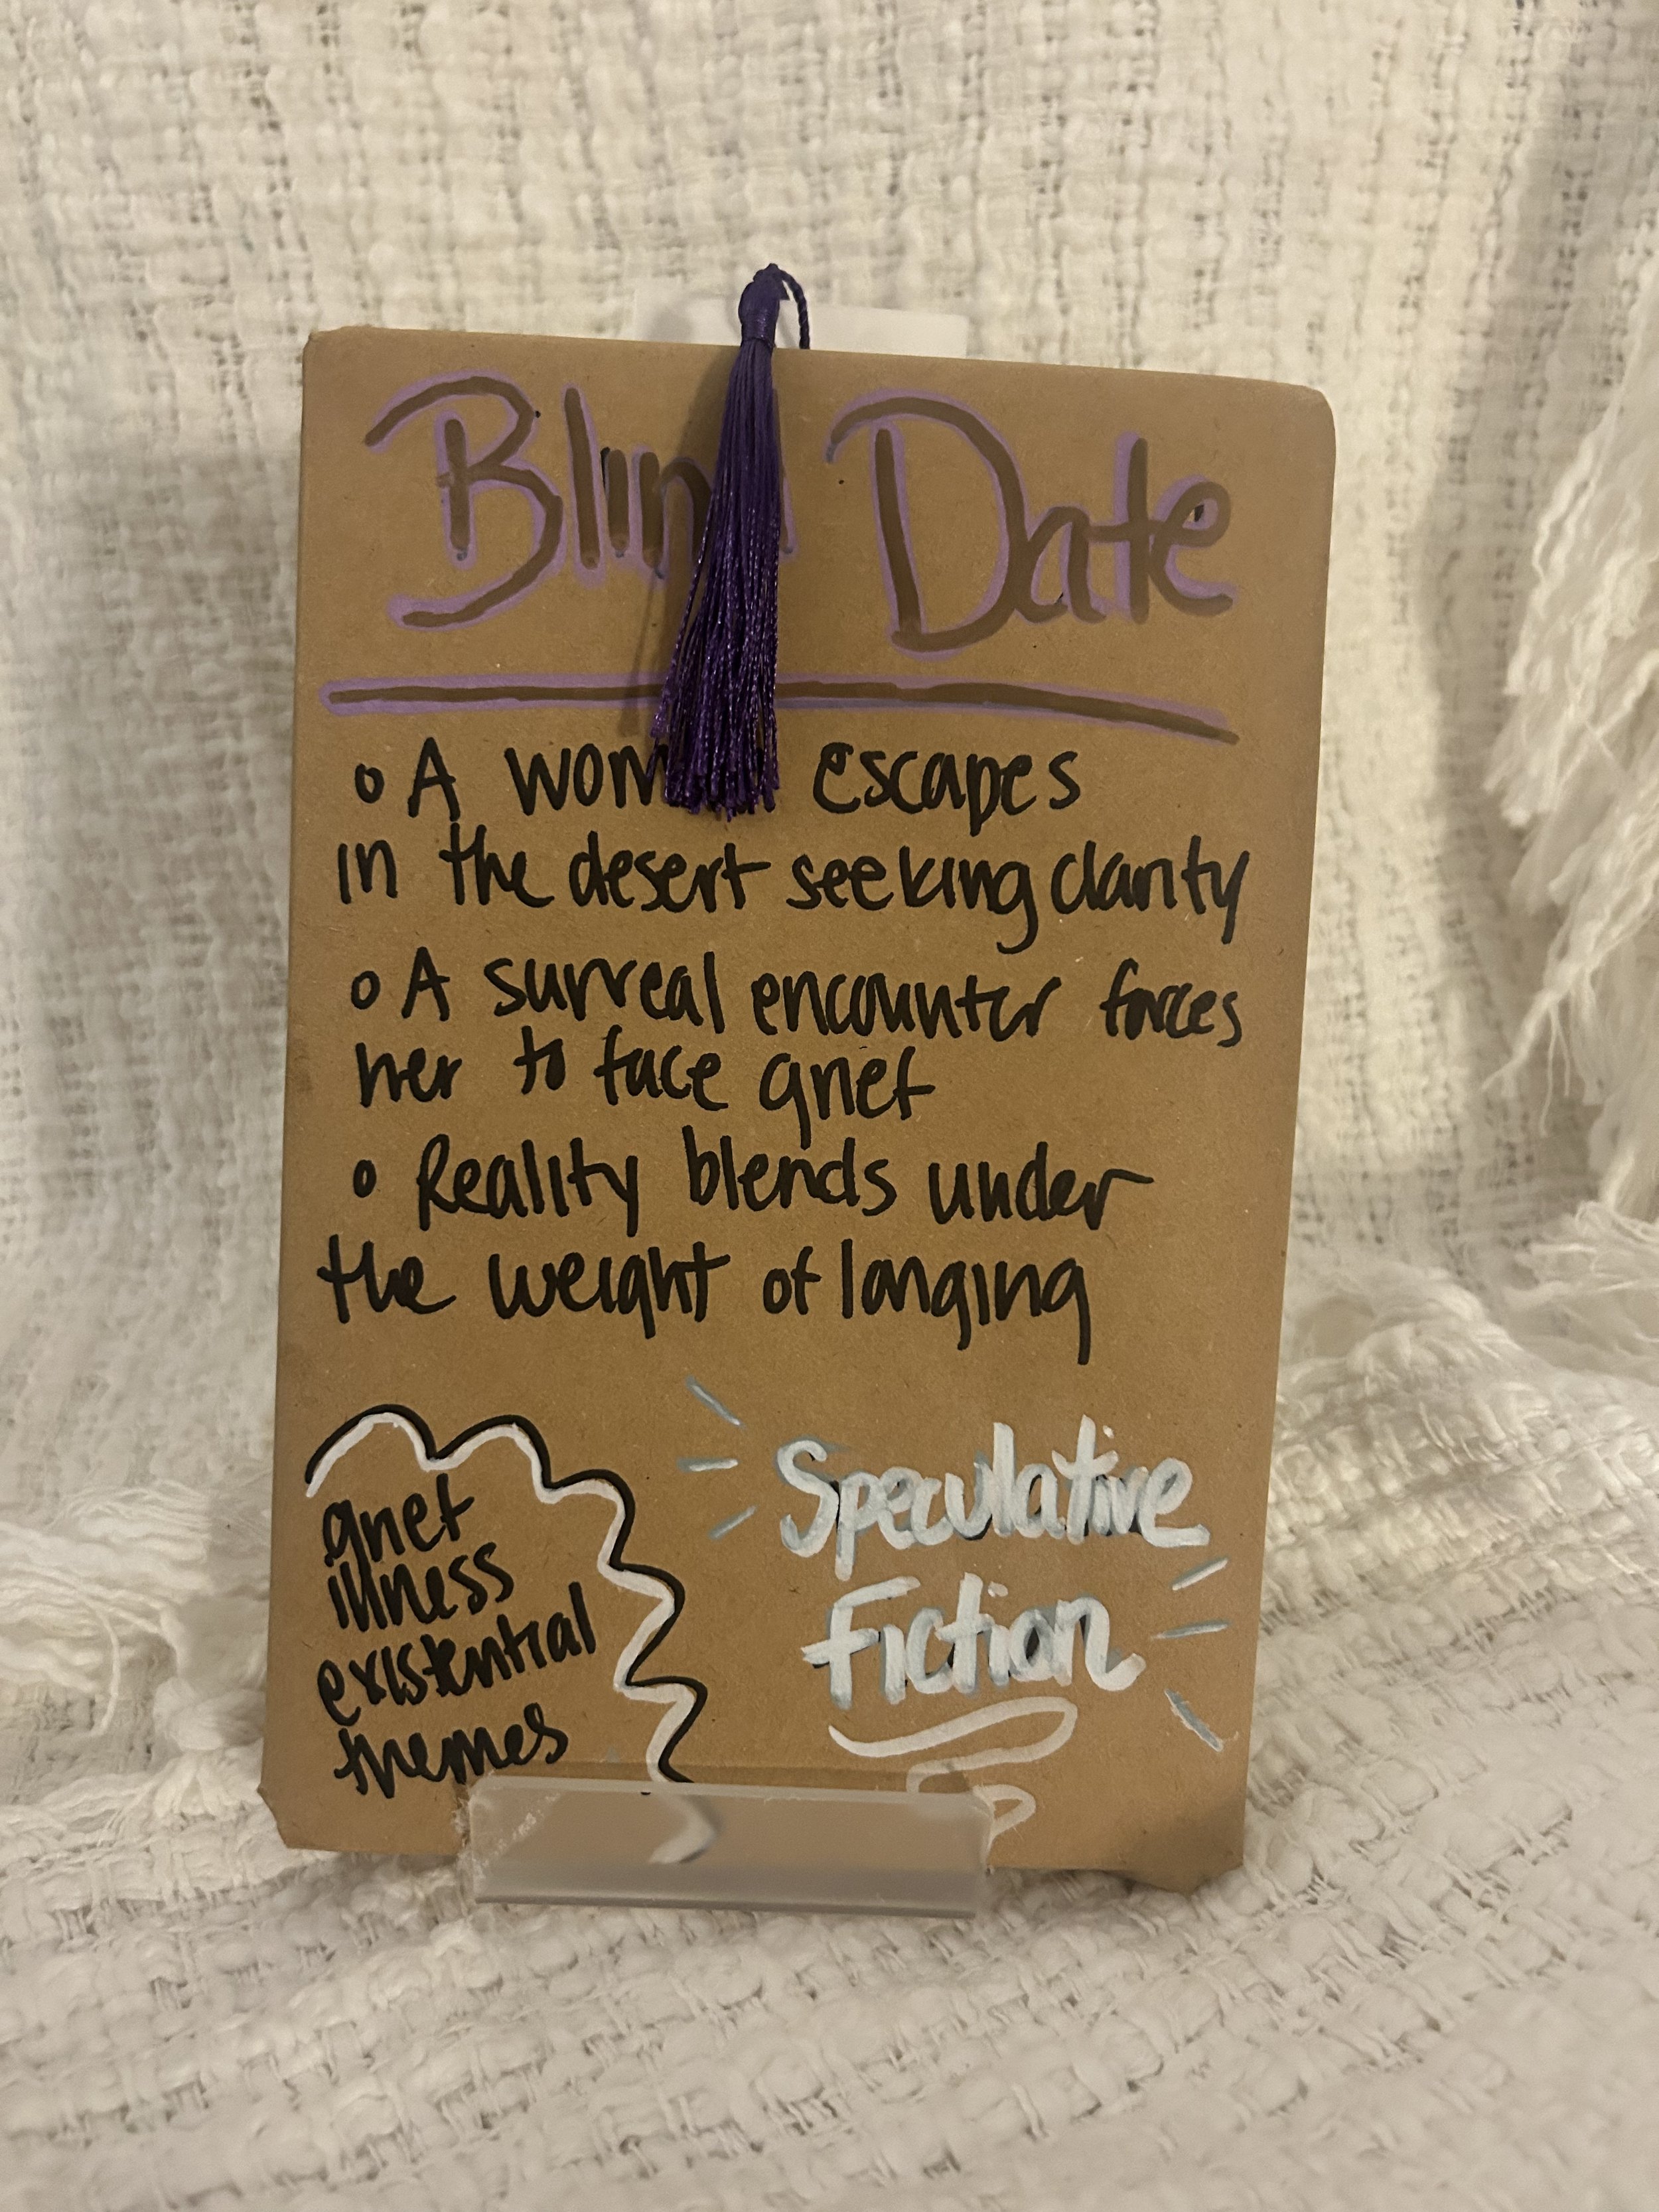 Blind Date
o A woman escapes
in the desert seeking clarity
o A surreal encounter forces
her to face grief
o Reality blends under
the weight of longing
grief
illness
existential
themes
Speculative
Fiction